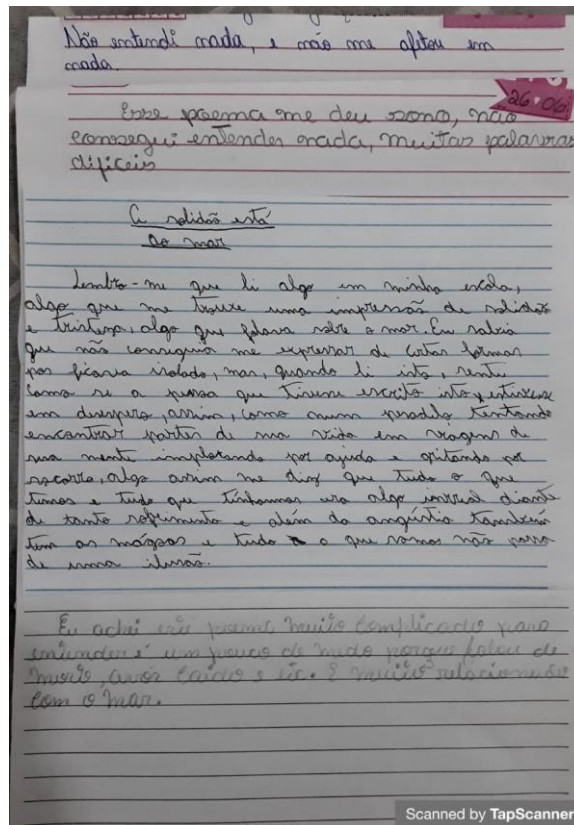 Não entendi nada, e não me afetou em
nada.
26 06
Esse poema me deu sono, não
consegui entender nada, muitas palavras
difíceis
A solidão está
ao mar
Lembro-me que li algo em minha escola,
algo que me trouxe uma impressão de solidão
e tristeza, algo que falava sobre o mar. Eu sabia
que não conseguia me expressar de certas formas
por ficava isolado, mas, quando li isto, senti
como se a pessoa que tivesse escrito isto, estivesse
em desespero, assim, como num pesadelo tentando
encontrar partes de sua vida em viagens de
sua mente implorando por ajuda e gritando por
socorro, algo assim me diz que tudo o que
temos e tudo que tínhamos era algo irreal diante
de tanto sofrimento e além da angústia também
tem as mágoas e tudo o que somos não passa
de uma ilusão.
Eu achei esse poema muito complicado para
entender e um pouco de medo porque falou de
morte, caido e etc. E muito relacionado
com o mar.
Scanned by TapScanner